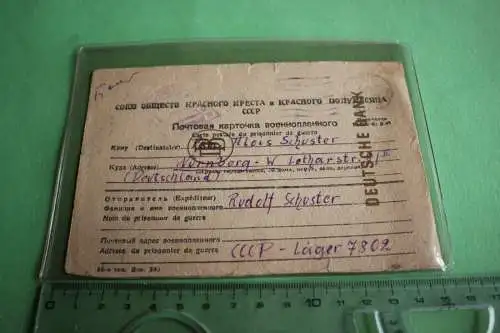 СОЮЗ ОБЩЕСТВ КРАСНОГО КРЕСТА и КРАСНОГО ПОЛУМЕСЯЦА
СССР
Почтовая карточка военнопленного
Carte postale du prisonnier de guerre
Кому (Destinataire) Alois Schuster
Куда (Adresse) Nürnberg-W Lotharstr.
(Deutschland)
Отправитель (Expéditeur)
Фамилия и имя военнопленного Rudolf Schuster
Nom du prisonnier de guerre
Почтовый адрес военнопленного
Adresse du prisonnier de guerre CCCP - Lager 7302
DEUTSCHE BANK
0 1 2 3 4 5 6 7 8 9 10